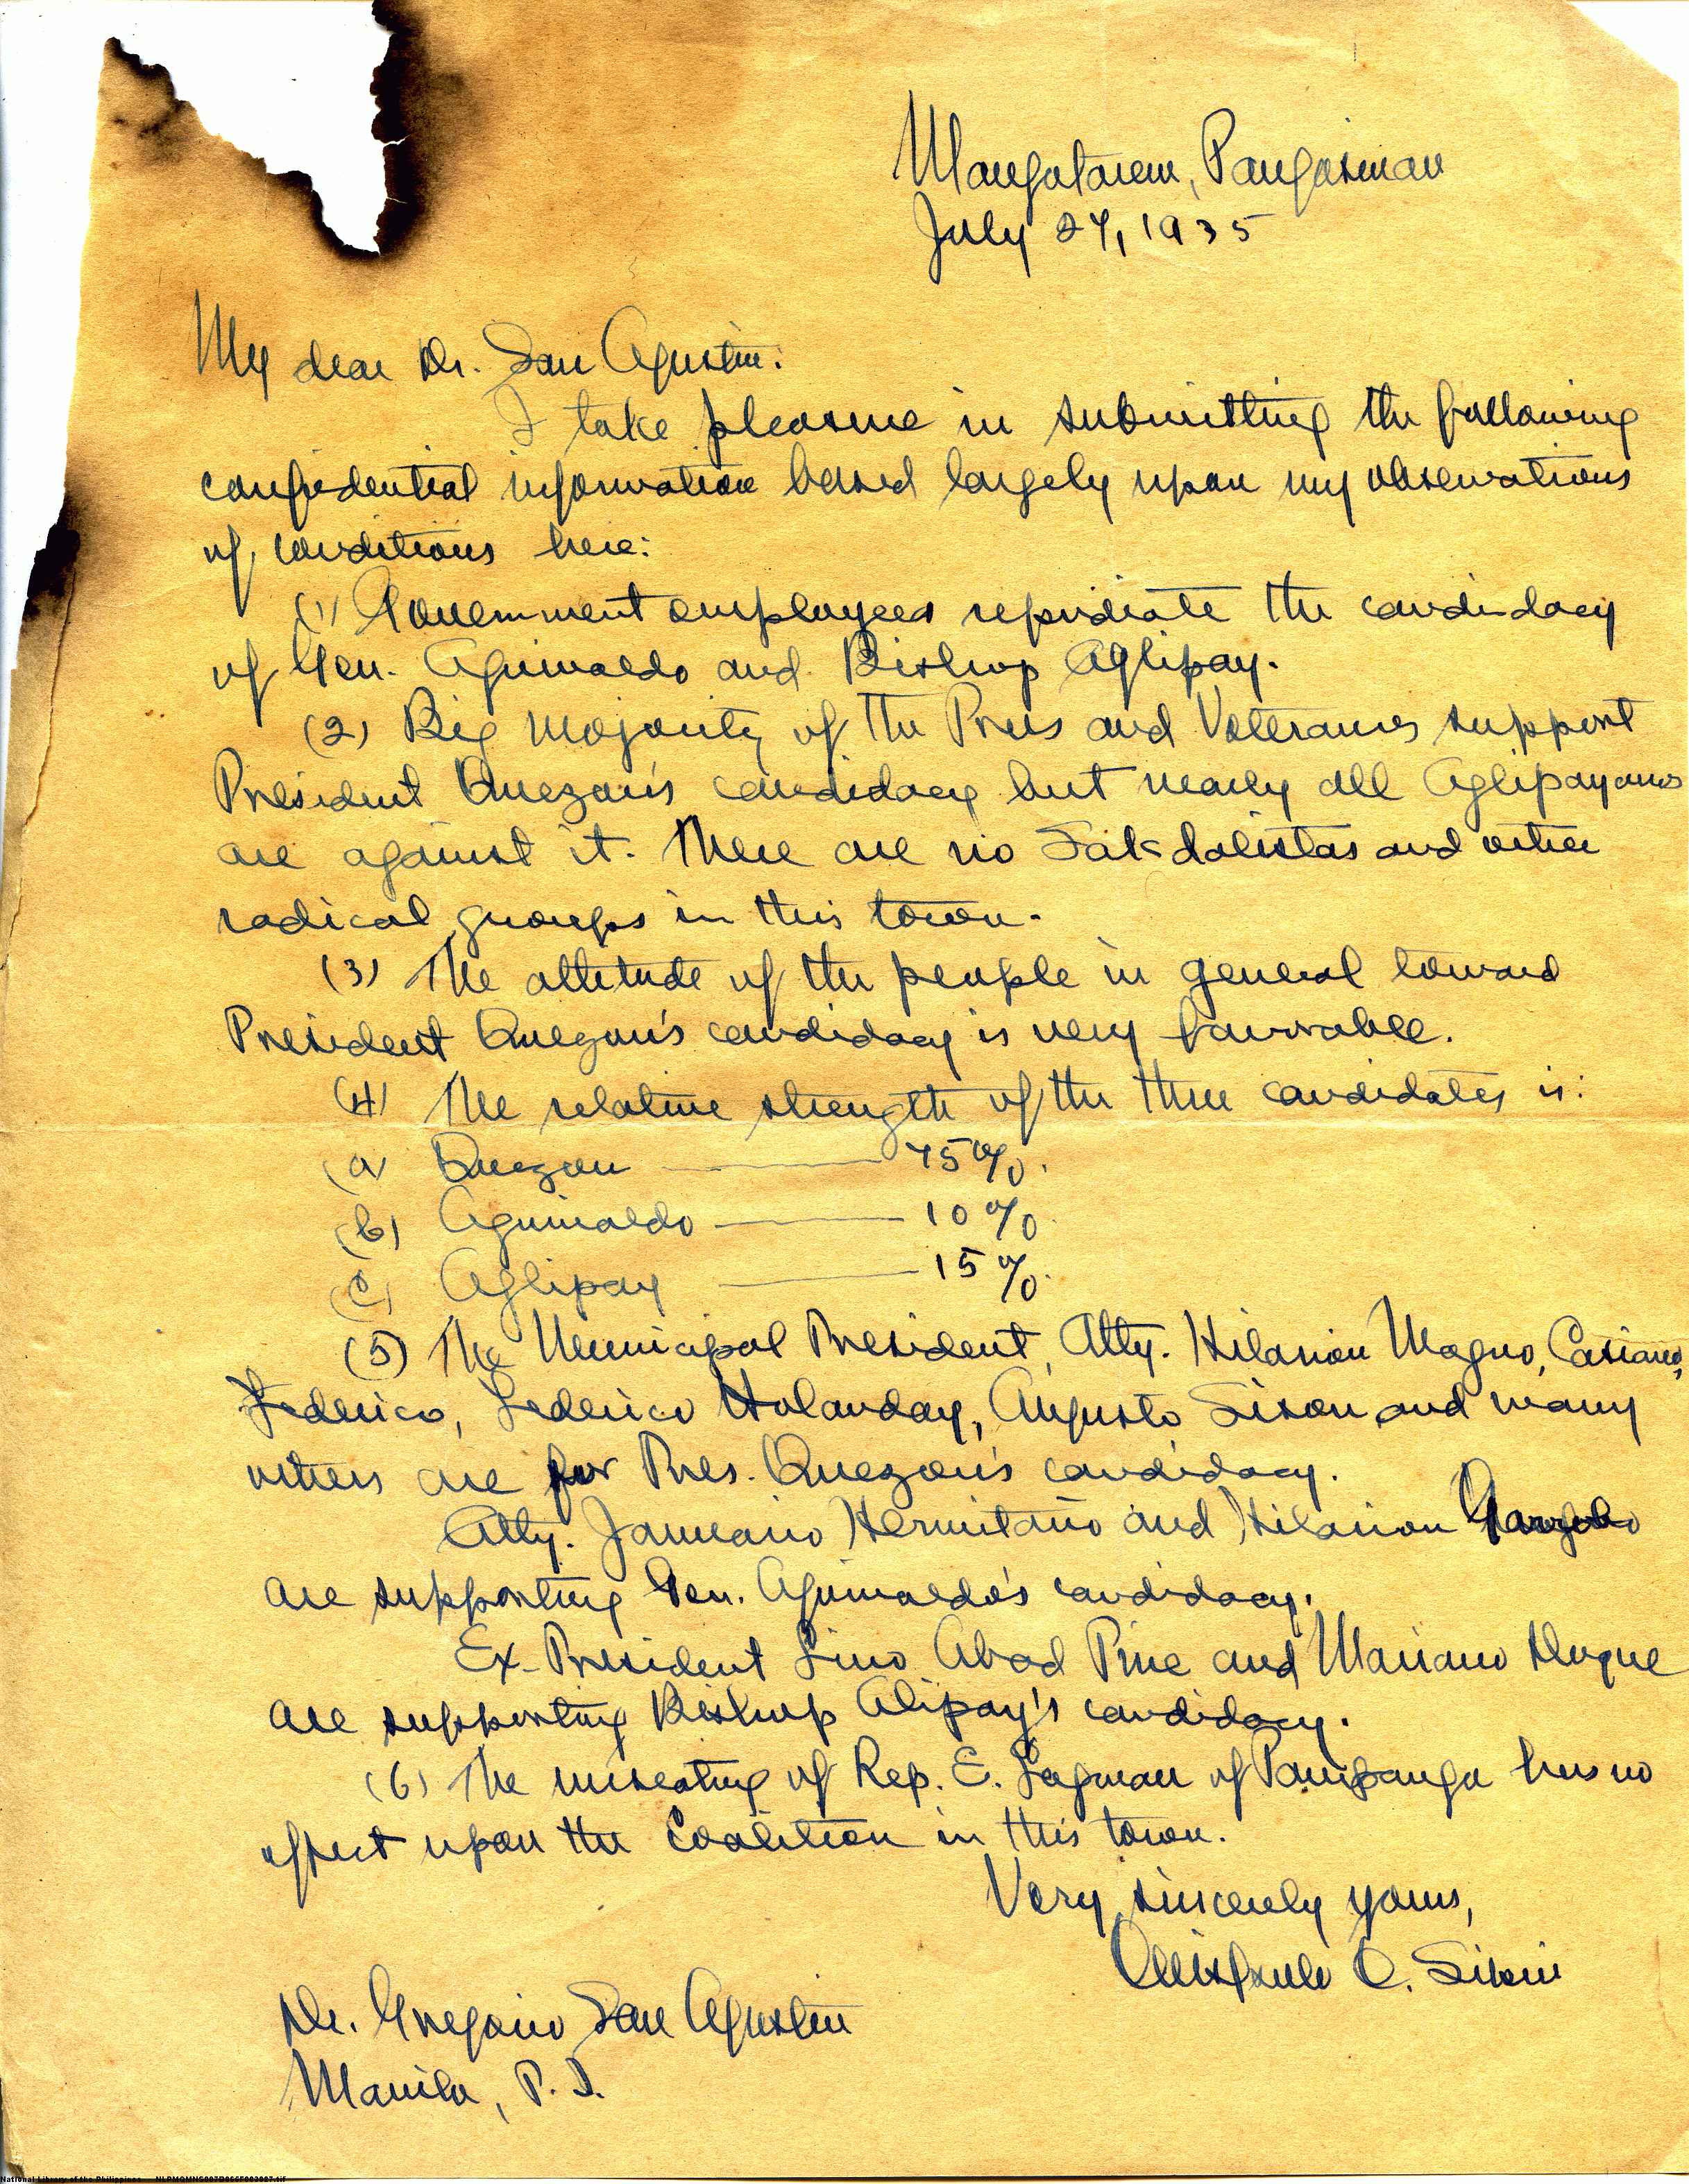 Mangatarem, Pangasinan
July 27, 1935
My dear Dr. San Agustin:
I take pleasure in submitting the following
confidential information based largely upon my observations
of conditions here:
(1) Government employees repudiate the candidacy
of Gen. Aguinaldo and Bishop Aglipay.
(2) Big majority of the Press and Veterans support
President Quezon's candidacy but nearly all Aglipayans
are against it. There are no Sakdalistas and other
radical groups in this town.
(3) The attitude of the people in general toward
President Quezon's candidacy is very favorable.
(4) The relative strength of the three candidates is:
(a) Quezon 75%.
(b) Aguinaldo 10%.
(c) Aglipay 15%.
(5) The Municipal President, Atty. Hilarion Magno, Casiano
Federico, Federico Holanday, Augusto Sison and many
others are for Pres. Quezon's candidacy.
Atty. Januario Hermitaño and Hilarion
are supporting Gen. Aguinaldo's candidacy.
Ex-President Lino Abad Pine and Mariano Duque
are supporting Bishop Alipay's candidacy.
(6) The unseating of Rep. E. Lagman of Pampanga has no
effect upon the Coalition in this town.
Very sincerely yours,
C. Sison
Dr. Gregorio San Agustin
Manila, P. I.
National Library of the Philippines